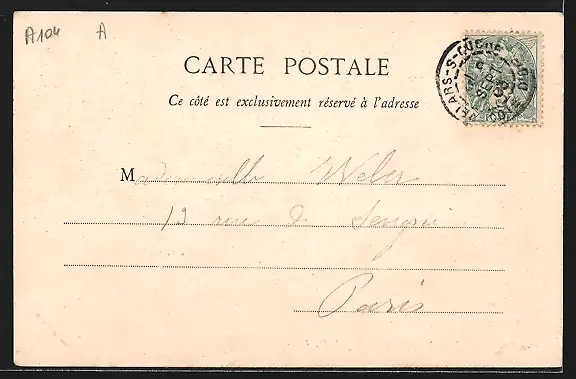 A104 A
CARTE POSTALE
Ce côté est exclusivement réservé à l'adresse
Mademoiselle Weler
13 rue de Sevigné
Paris
VELARS-S-OUCHE